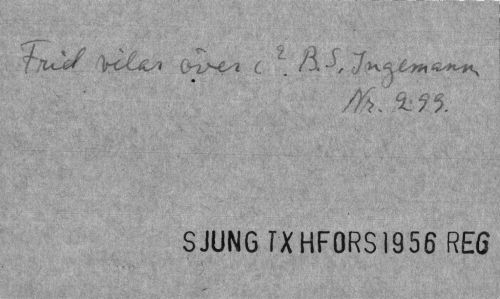 Frid vilar över ( ? B.S. Ingemann
Nr. 299.
SJUNG TX HFORS1956 REG